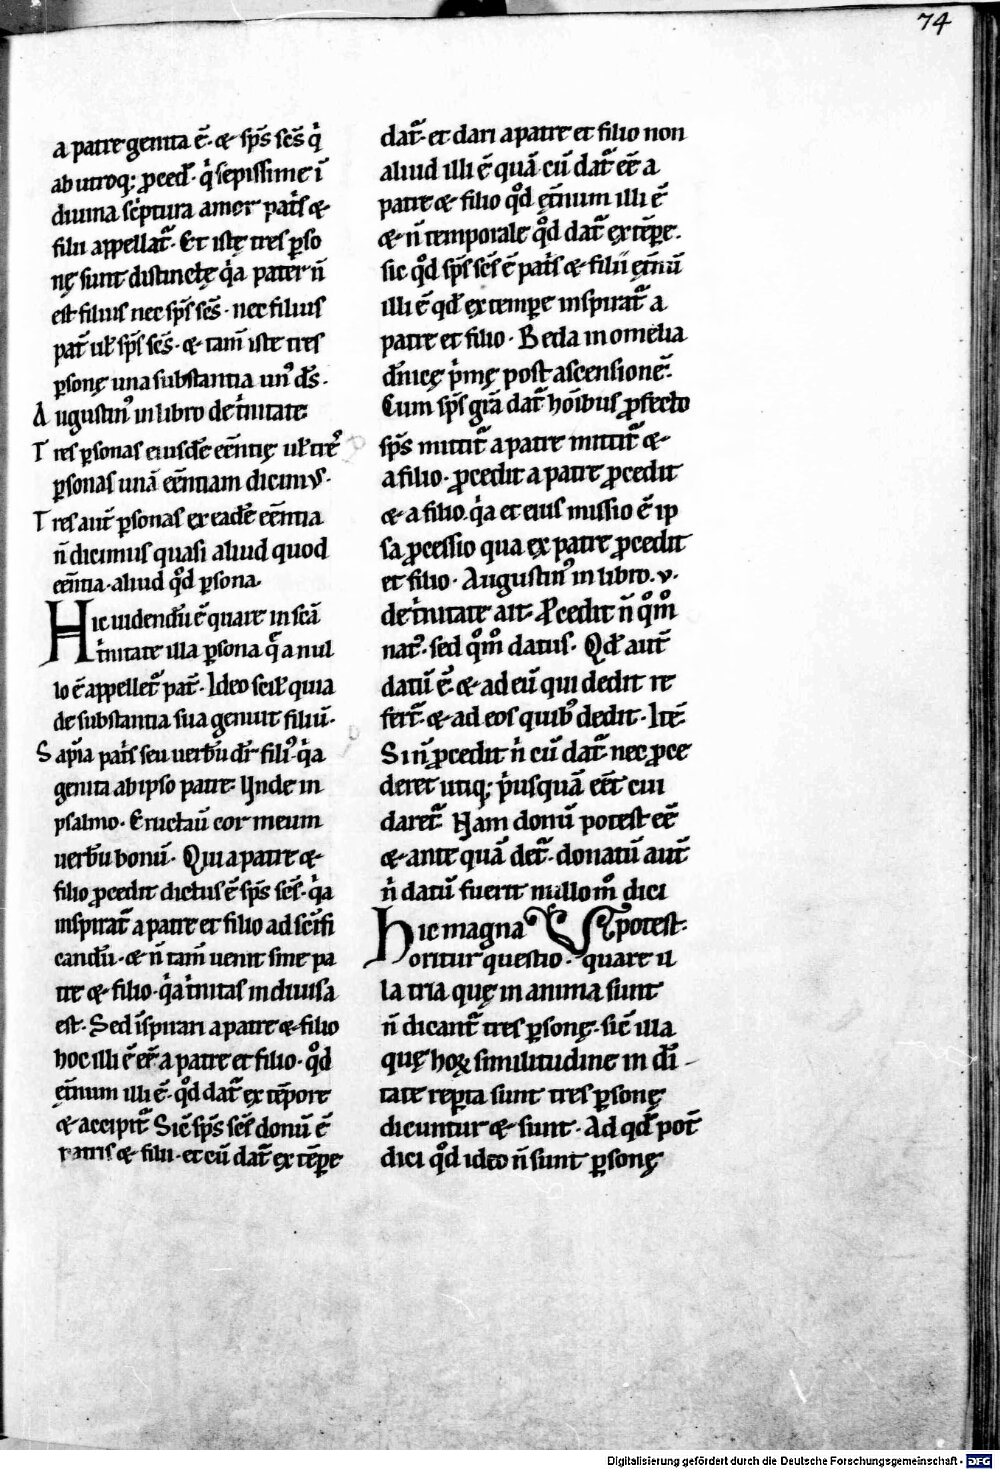 74
a patre genita ē. & sp̄s sc̄s q̇
ab utroq; ꝓced̄. q̇ sepissime ī
diuina sc̄ptura amor pat̄s &
filii appellat᷑. Et istę tres ꝑso
nę sunt distinctę q̇a pater n̄
est filius nec sp̄s sc̄s. nec filius
pat̄ ul̄ sp̄s sc̄s. & tam̄ iste tres
ꝑsonę una substantia un᷒ d̄s.
Augustin᷒ in libro de ṫnitate
Tres ꝑsonas eiusdē eēntię ul̄ tre᷒
ꝑsonas unā eēntiam dicimus.
Tres aut̄ ꝑsonas ex eadē eēntia
n̄ dicimus quasi aliud quod
eēntia. aliud qͦd ꝑsona.
Hic uidendū ē quare in scā
ṫnitate illa ꝑsona quę a nul
lo ē appellet᷑ pat̄. Ideo scil̄ quia
de substantia sua genuit filiū.
Sapīa pat̄s seu uerbū dr̄ fili᷒ q̇a
genita ab ipso patre. Unde in
psalmo. Eructauī cor meum
uerbū bonū. Qui a patre &
filio ꝓcedit dictus ē sp̄s sc̄s. q̇a
inspirat᷑ a patre et filio ad sc̄ifi
candū. & n̄ tam̄ uenit sine pa
tre & filio. q̇a ṫnitas indiuisa
est. Sed īspirari a patre & filio
hoc illi ē eē a patre et filio. qͦd
ęt̄num illi ē. qͦd dat᷑ ex tēpore
& accipit᷑. Sic̄ sp̄s sc̄s donū ē
patris & filii. et cū dat᷑ ex tēꝑe
dat᷑. et dari a patre et filio non
aliud illi ē quā cū dat᷑ eē a
patre & filio qͦd ęt̄num illi ē
& n̄ temporale qͦd dat᷑ ex tēꝑe.
sic qͦd sp̄s sc̄s ē pat̄s & filii ęt̄nū
illi ē qd̄ ex tempe inspirat᷑ a
patre et filio. Beda in omelia
dn̄icę p̄mę post ascensionē.
Cum sp̄s gr̄a dat᷑ hoībus ꝓfecto
sp̄s mittit᷑ a patre mittit᷑ &
a filio. ꝓcedit a patre ꝓcedit
& a filio. q̇a et eius missio ē ip
sa ꝓcessio qua ex patre ꝓcedit
et filio. Augustin᷒ in libro .v.
de ṫnitate ait. Ꝓcedit n̄ qͦm̊
nat᷒. sed qͦm̊ datus. Qd̄ aut̄
datū ē. & ad eū qui dedit re
fert᷑. & ad eos quib᷒ dedit. Itē.
Si n̄ ꝓcedit n̄ cū dat᷑. nec ꝓce
deret utiq; ṗusquā eēt cui
daret᷑. Nam donū potest eē
& ante quā det᷑. donatū aut̄
n̄ datū fuerit nullom̊ dici
Hic magna potest.
oritur questio. quare il
la tria quę in anima sunt
n̄ dicant᷑ tres ꝑsonę. sic̄ illa
quę hoꝝ similitudine in dī
tate reꝑta sunt tres ꝑsonę
dicuntur & sunt. Ad qd̄ pot̄
dici qͦd ideo n̄ sunt ꝑsonę
Digitalisierung gefördert durch die Deutsche Forschungsgemeinschaft - DFG